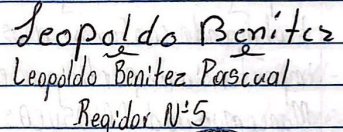 Leopoldo Benitez
Leopoldo Benitez Pascual
Regidor N°5